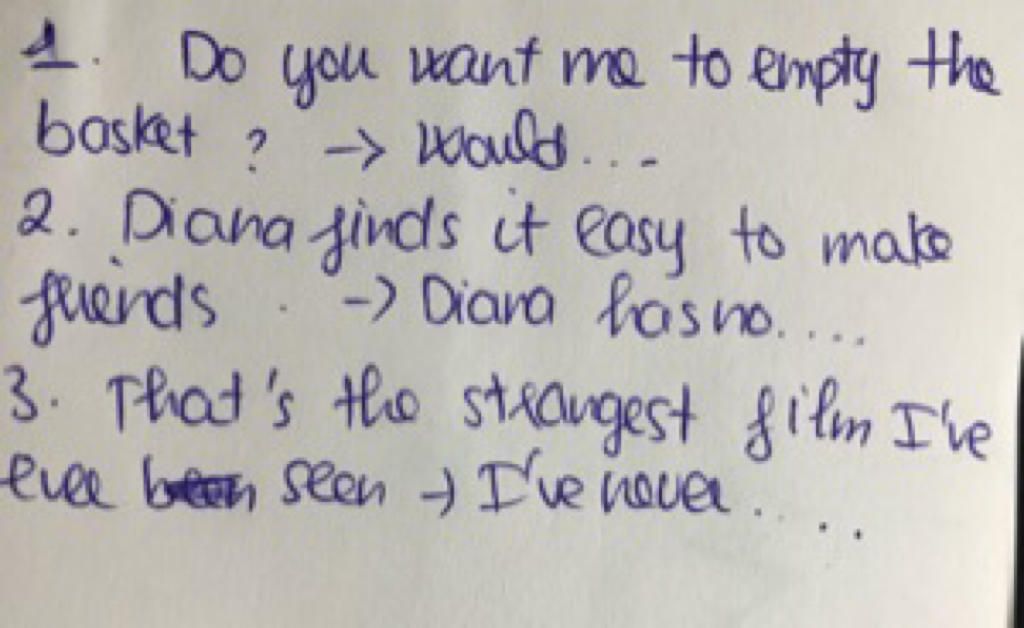 1. Do you want me to empty the
basket ? -> Would....
2. Diana finds it easy to make
friends. -> Diana has no....
3. That's the strangest film I've
ever seen -> I've never....